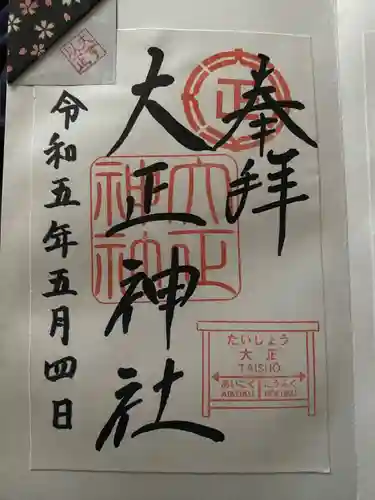 奉拝
正
大正神社
大正神社
令和五年五月四日
たいしょう
大正
TAISHO
あいこく こうふく
AIKOKU KOFUKU